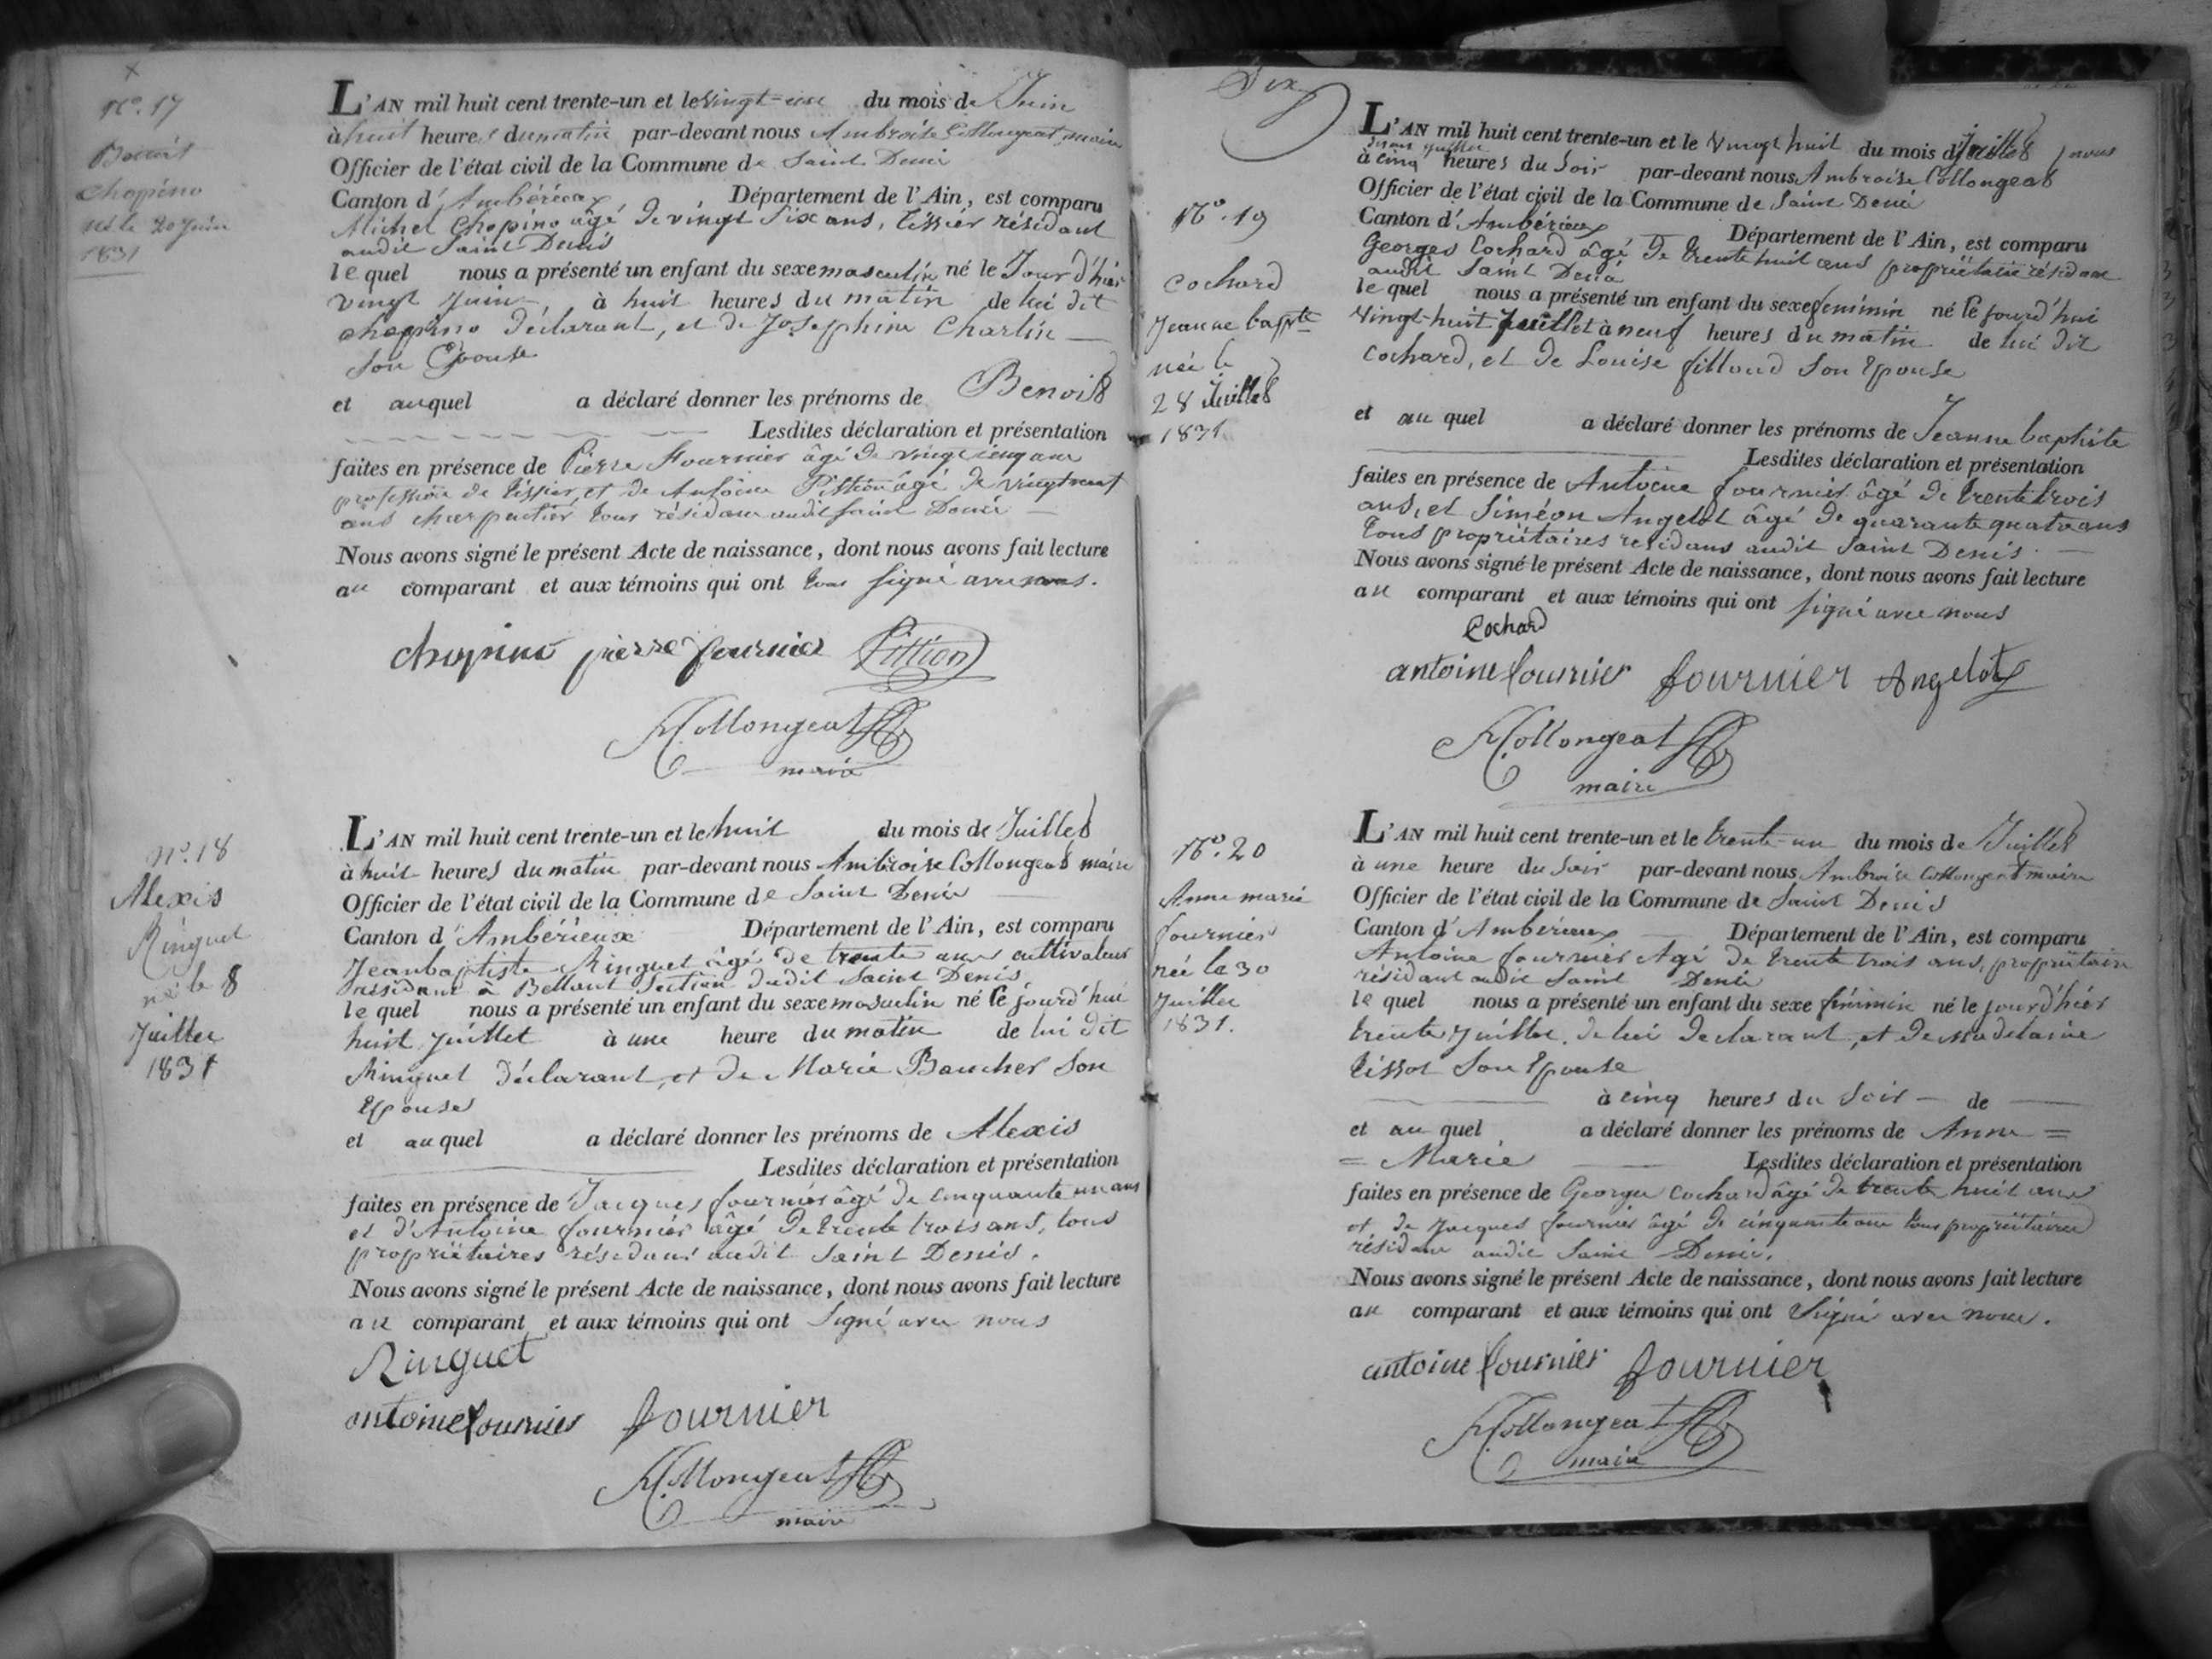 N.° 17
Benoit
Chopino
né le 20 Juin
1831
L'AN mil huit cent trente-un et le vingt-un du mois de Juin
à huit heures du matin par-devant nous Ambroise Collongeat maire
Officier de l'état civil de la Commune de Saint Denis
Canton d'Ambérieux Département de l'Ain, est comparu
Michel Chopino âgé de vingt six ans, tissier résidant
audit Saint Denis
le quel nous a présenté un enfant du sexe masculin né le Jour d'hier
vingt Juin, à huit heures du matin de lui dit
chopino déclarant, et de Josephine Charlin
son Epouse
et auquel a déclaré donner les prénoms de Benoit
Lesdites déclaration et présentation
faites en présence de Pierre Fournier âgé de vingt cinq ans
profession de tissier, et de Antoine Pittion âgé de vingt neuf
ans charpentier tous résidans audit Saint Denis
Nous avons signé le présent Acte de naissance, dont nous avons fait lecture
au comparant et aux témoins qui ont tous signé avec nous.
chopino pierre fournier Pittion
A Collongeat
maire
N.° 18
Alexis
Ringuet
né le 8
Juillet
1831
L'AN mil huit cent trente-un et le huit du mois de Juillet
à huit heures du matin par-devant nous Ambroise Collongeat maire
Officier de l'état civil de la Commune de Saint Denis
Canton d'Ambérieux Département de l'Ain, est comparu
Jeanbaptiste Ringuet âgé de trente ans cultivateur
résidant à Bellout Section dudit Saint Denis
le quel nous a présenté un enfant du sexe masculin né le jourd'hui
huit Juillet à une heure du matin de lui dit
Ringuet déclarant, et de Marie Baucher Son
Epouse
et auquel a déclaré donner les prénoms de Alexis
Lesdites déclaration et présentation
faites en présence de Jacques fournier âgé de cinquante un ans
et d'Antoine fournier âgé de trente trois ans, tous
propriétaires résidans audit Saint Denis.
Nous avons signé le présent Acte de naissance, dont nous avons fait lecture
au comparant et aux témoins qui ont Signé avec nous
Ringuet
antoine fournier fournier
A Collongeat
maire
Dix
N.° 19
Cochard
Jeanne bapte
née le
28 Juillet
1831
L'AN mil huit cent trente-un et le Vingt huit du mois de Juillet
à cinq heures du Soir par-devant nous Ambroise Collongeat
Officier de l'état civil de la Commune de Saint Denis
Canton d'Ambérieux Département de l'Ain, est comparu
Georges Cochard âgé de trente huit ans propriétaire résidant
audit Saint Denis
le quel nous a présenté un enfant du sexe feminin né le jourd'hui
Vingt-huit Juillet à neuf heures du matin de lui dit
Cochard, et de Louise filloud Son Epouse
et au quel a déclaré donner les prénoms de Jeanne baptiste
Lesdites déclaration et présentation
faites en présence de Antoine fournier âgé de trente trois
ans, et Siméon Angelot âgé de quarante quatre ans
tous propriétaires residans audit Saint Denis
Nous avons signé le présent Acte de naissance, dont nous avons fait lecture
au comparant et aux témoins qui ont signé avec nous
Cochard
antoine fournier fournier Angelot
A Collongeat
maire
N.° 20
Anne marie
fournier
née le 30
Juillet
1831.
L'AN mil huit cent trente-un et le trente-un du mois de Juillet
à une heure du Soir par-devant nous Ambroise Collongeat maire
Officier de l'état civil de la Commune de Saint Denis
Canton d'Ambérieux Département de l'Ain, est comparu
Antoine fournier Agé de trente trois ans, propriétaire
résidant audit Saint Denis
le quel nous a présenté un enfant du sexe féminin né le jourd'hier
trente Juillet, de lui déclarant, et de Madelaine
tissot Son Epouse
à cinq heures du Soir de
et au quel a déclaré donner les prénoms de Anne =
= Marie Lesdites déclaration et présentation
faites en présence de Georges Cochard âgé de trente huit ans
et de Jacques fournier âgé de cinquante un tous propriétaires
résidans audit Saint Denis.
Nous avons signé le présent Acte de naissance, dont nous avons fait lecture
au comparant et aux témoins qui ont Signé avec nous.
antoine fournier fournier
A Collongeat
maire